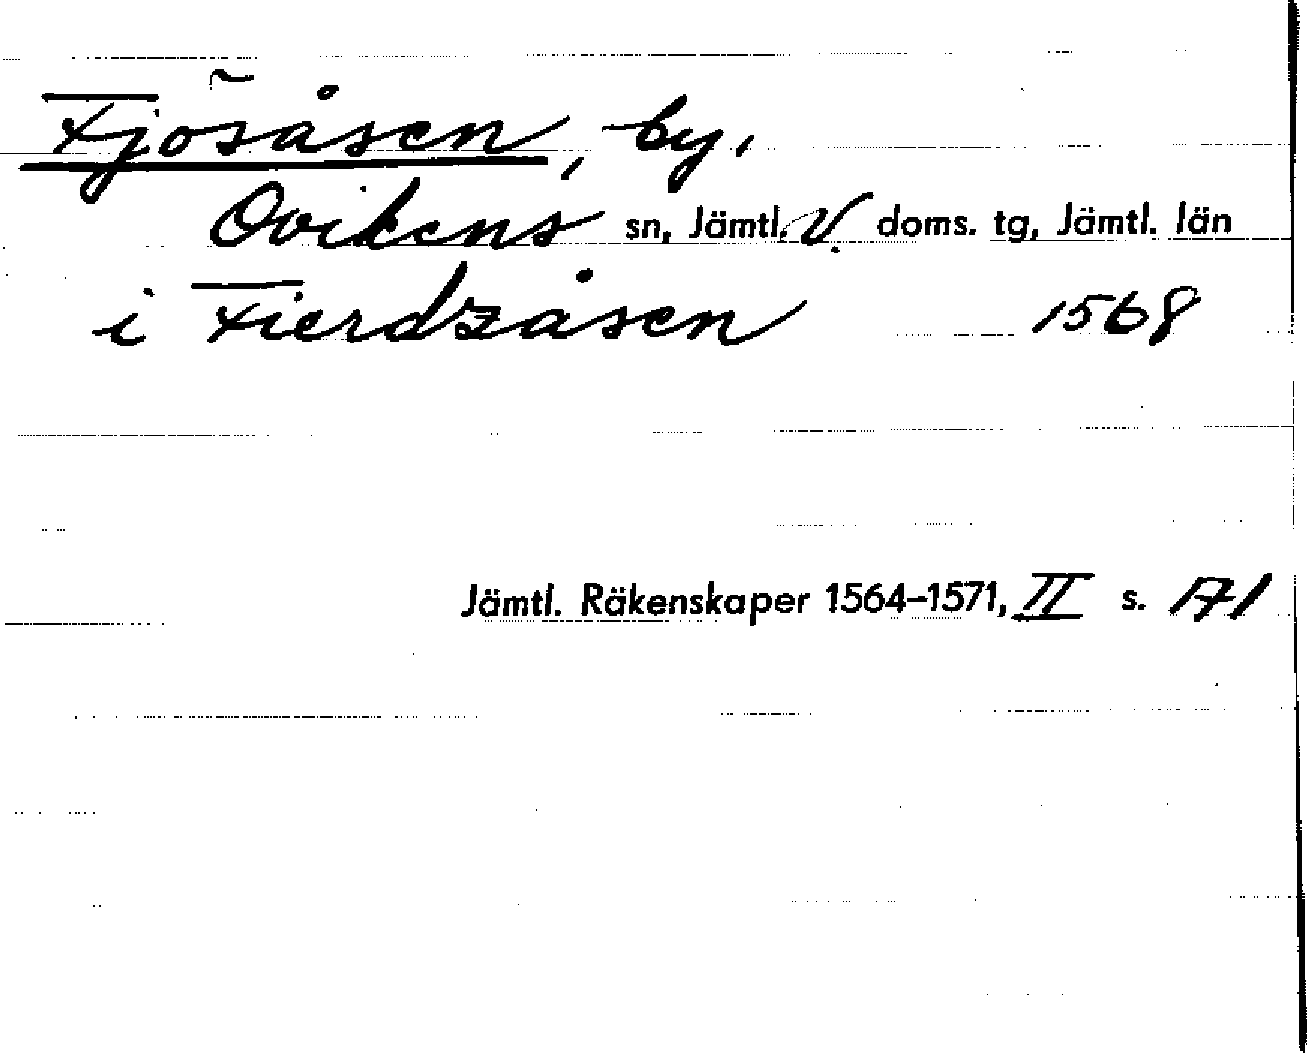 Fjösåsen, by,
Ovikens sn, Jämtl. V. doms. tg, Jämtl. län
i Fierdzåsen 1568
Jämtl. Räkenskaper 1564-1571, II s. 171